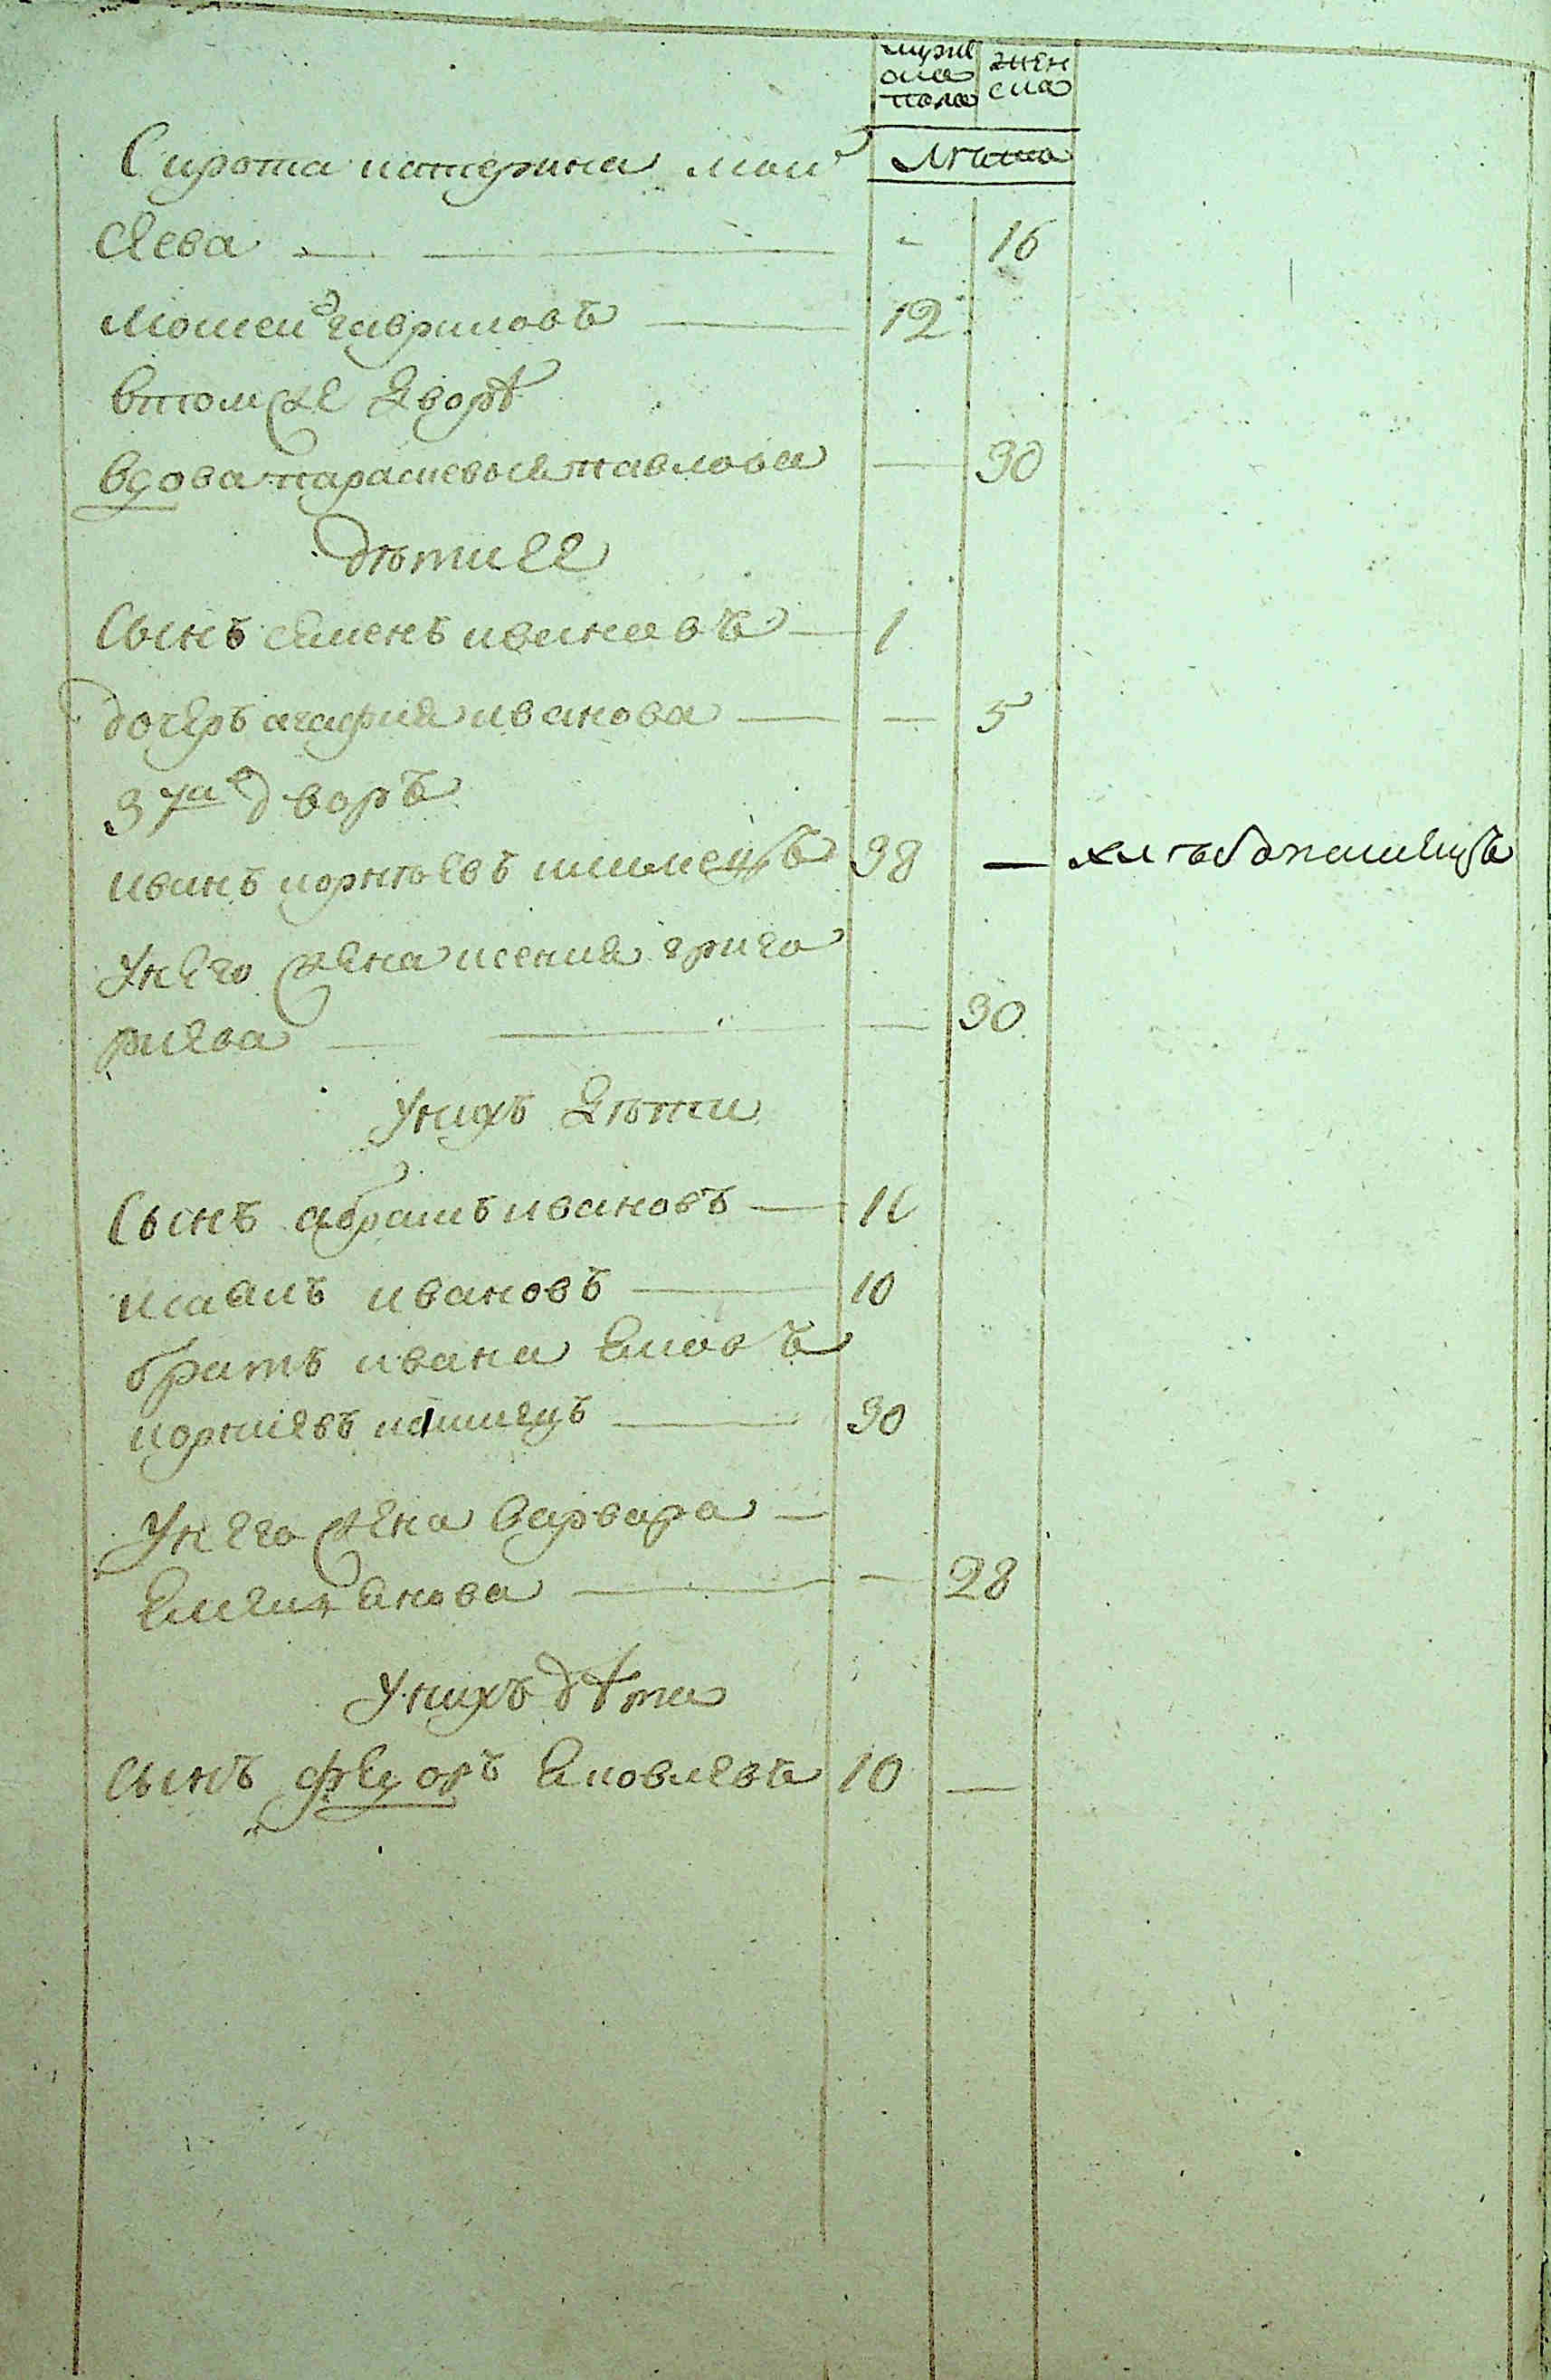 мужe ска пола
женска
Лѣта
Сирота катерина мои
сѣева — — 16
Мосеи гавриловъ — 12
втомже дворѣ
вдова парасковея павлова — 30
дѣти ее
Сынъ семенъ ивановъ — 1
дочеръ агафия иванова — — 5
3 дворъ
иванъ корнѣевъ 38 — хлѣбопашецъ
Унего жена ксения григо
риева — — 30
Унихъ дѣти
Сынъ абрамъ ивановъ — 16
ивановъ — 10
братъ ивана яковъ
корниевъ — 30
Унего жена варвара —
емелиянова — — 28
Унихъ дѣти
сынъ федоръ яковлевъ 10 —